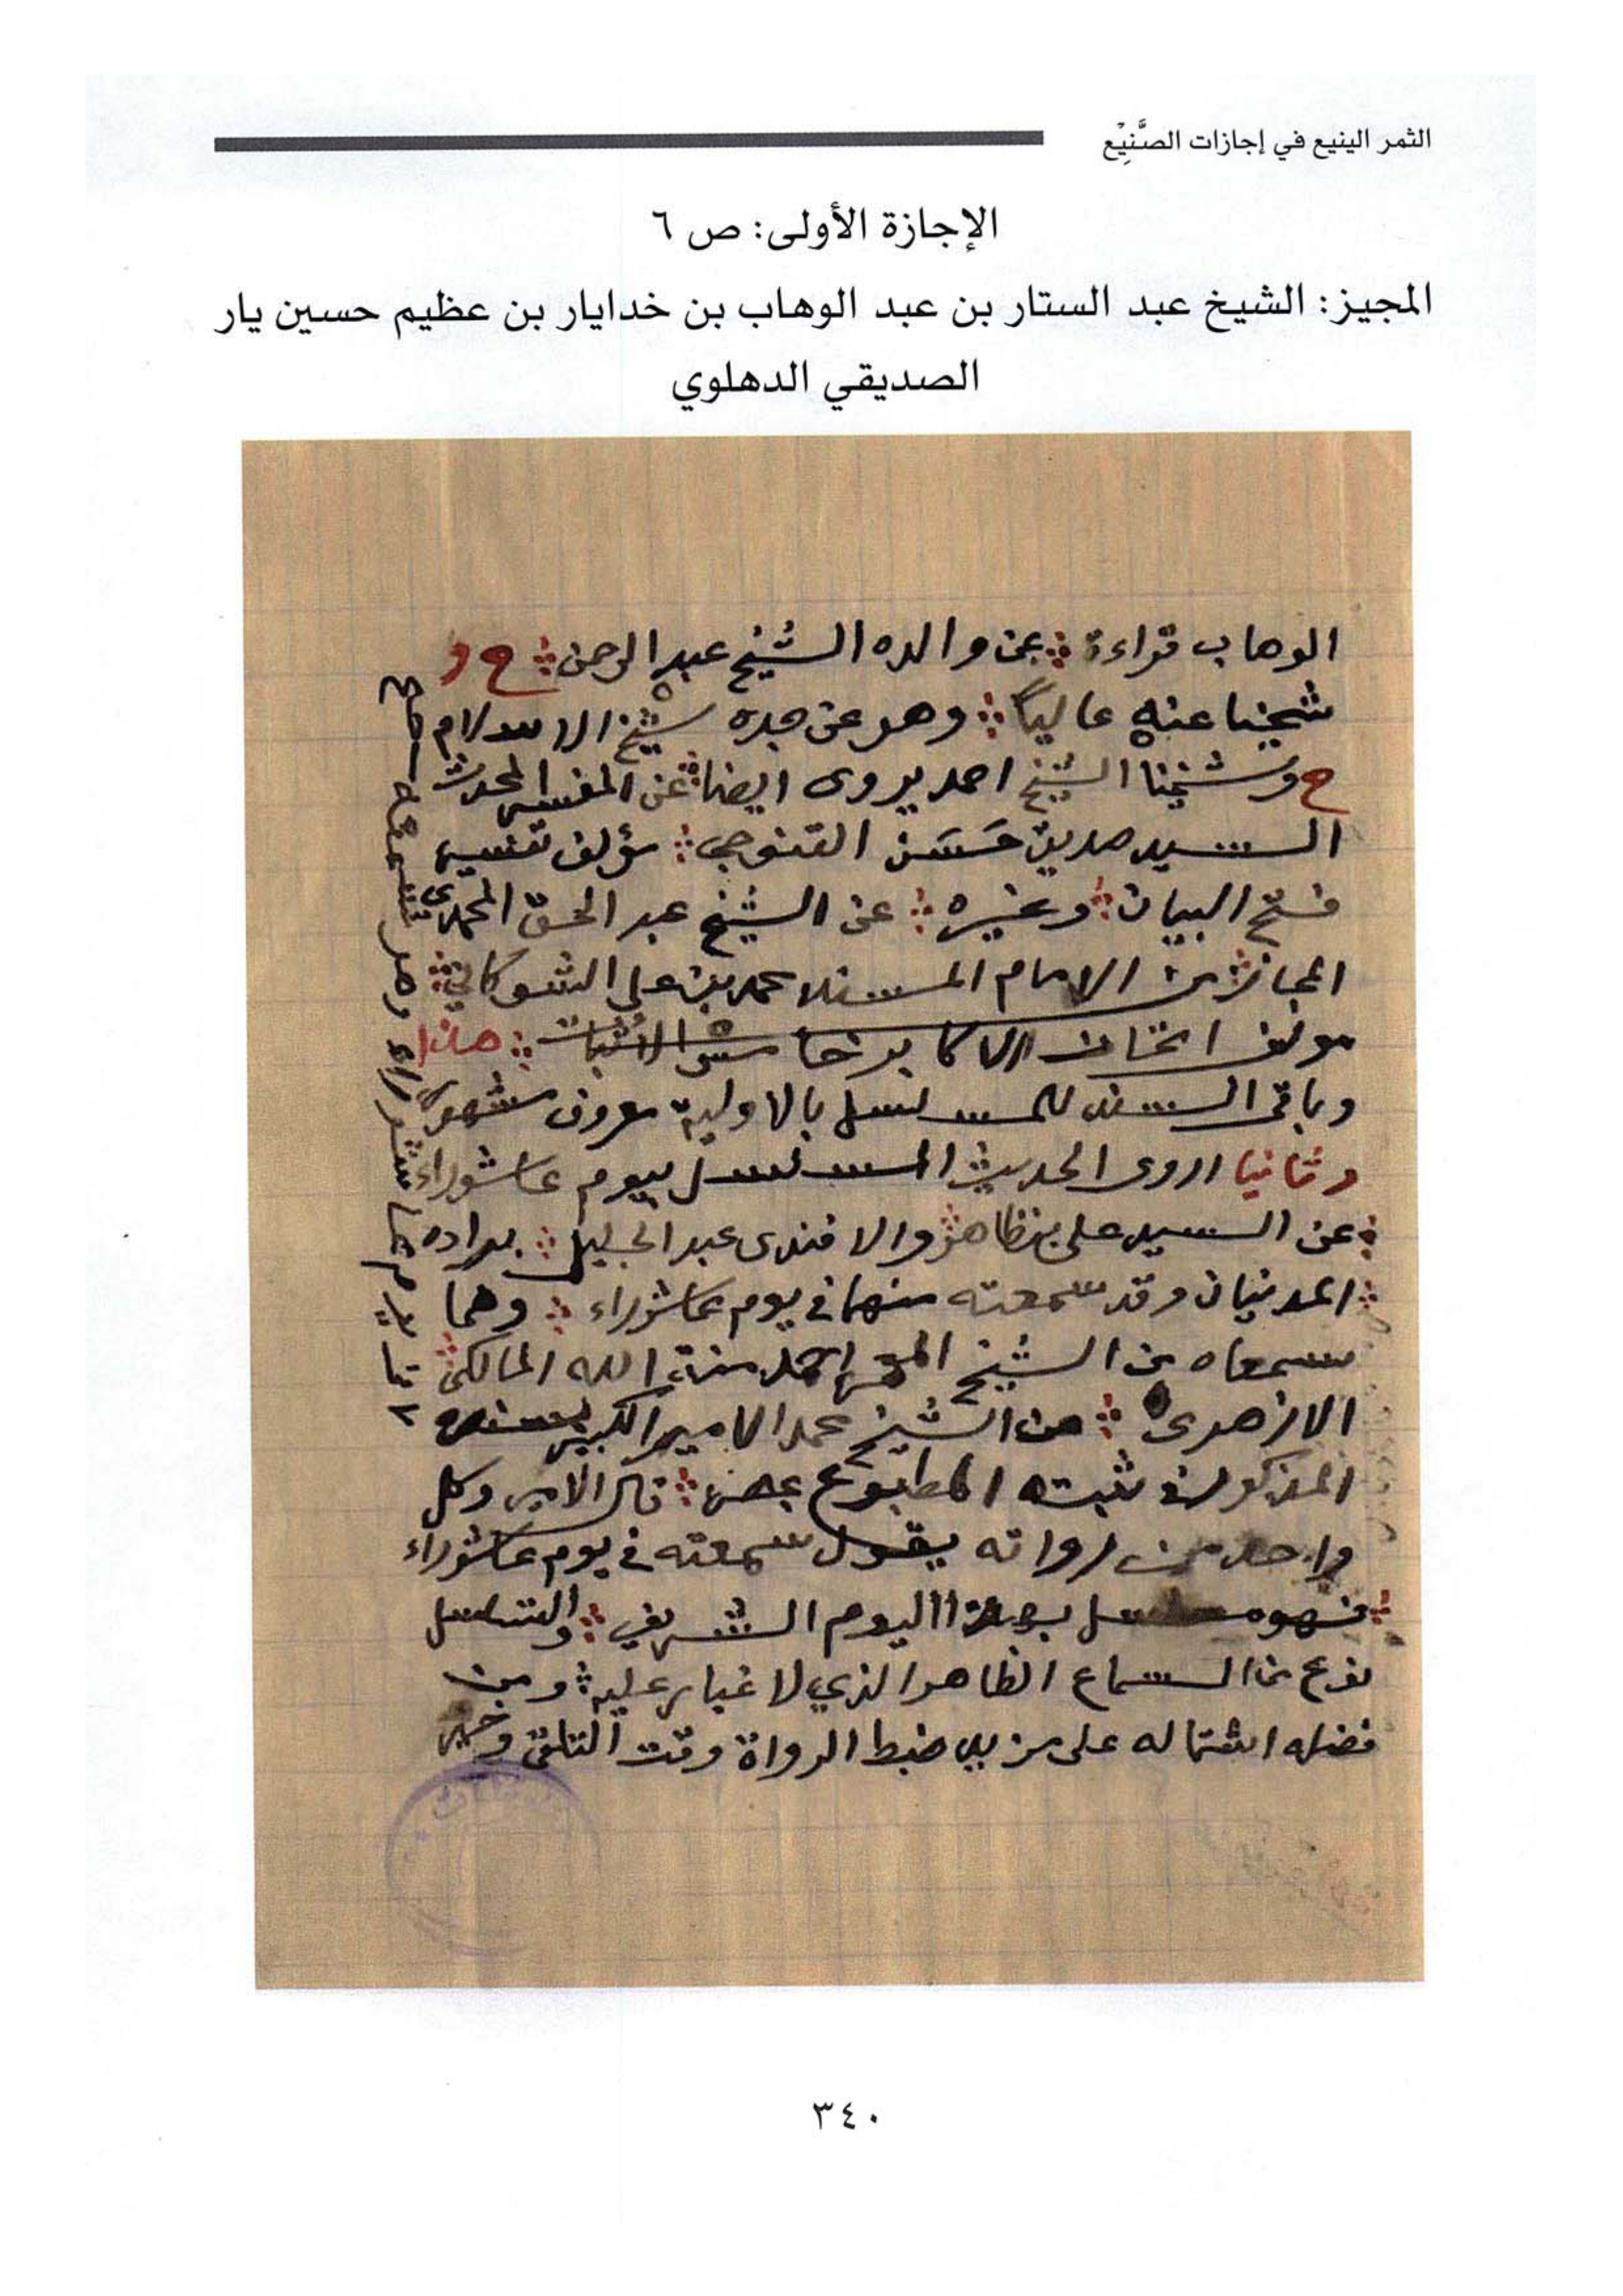 الثمر الينيع في إجازات الصَّنِيْع
الإجازة الأولى: ص ٦
المجيز: الشيخ عبد الستار بن عبد الوهاب بن خدايار بن عظيم حسين يار
الصديقي الدهلوي
الوهاب قراءة عن والده الشيخ عبد الرحمن ح و
شيخنا عنه عالياً وهو عن جده شيخ الاسلام
ح وشيخنا الشيخ احمد يروى ايضا عن المفسر المحدث
السيد صديق حَسَن القنوجي مؤلف تفسير
فتح البيان وغيره عن الشيخ عبد الحق المحمدي
المجاز من الامام المسند محمد بن علي الشوكاني
مؤلف اتحاف الاكابر باسناد الدفاتر هذا
وباقى السند للمسلسل بالاولية معروف مشهور
وثانيا اروى الحديث المسلسل بيوم عاشوراء
عن السيد على بن ظاهر والافندى عبد الجليل براده
المدنيان وقد سمعته منهما في يوم عاشوراء وهما
سمعاه من الشيخ احمد منة الله المالكى
الازهرى عن الشيخ محمد الامير الكبير بسنده
المذكور في ثبته المطبوع بمصر قال الامير وكل
واحد من رواته يقول سمعته في يوم عاشوراء
فهو مسلسل بهذا اليوم الشريف والتسلسل
نوع من السماع الظاهر الذي لا غبار عليه ومن
فضله اشتماله على مزيد ضبط الرواة وقت التلقى وخير
٣٤٠